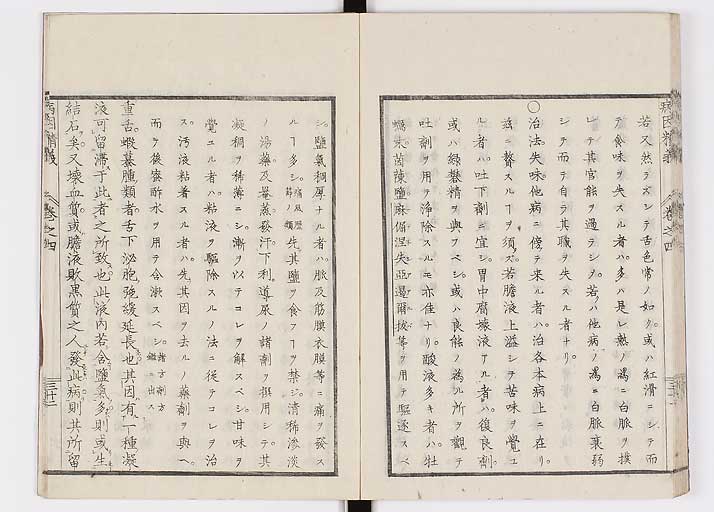 若又然ラズシテ舌色常ノ如ク。或ハ紅滑ニシテ而
テ食味ヲ失スル者ハ。多ハ是レ熱ノ為ニ白脈ヲ撲
レテ其官能ヲ過テシタ。若ハ他病ノ為ニ白脈衰弱
シテ而テ自ラ其職ヲ失スル者ナリ。
〇治法失味他病ニ傍テ来ル者ハ。治各本病上ニ在リ。
茲ニ贅スルヿヲ須ズ。若膽液上溢シテ苦味ヲ覺ユ
ル者ハ吐下劑ニ宜シ。胃中腐壊液アル者ハ。復良劑
或ハ緑礬精ヲ與フベシ。或ハ良能ノ為ル所ヲ觀テ
吐劑ヲ用テ浄除スルモ亦佳ナリ。酸液多キ者ハ。牡
蠣末茵蔯鹽麻偏涅失亜
等ヲ用テ驅逐スベ
病因精義
巻之四
シ。鹽氣稠厚ナル者ハ。脈及筋膜衣膜等ニ痛ヲ發ス
ルヿ多シ。痛風歴節ノ類先其鹽ヲ食フヿヲ禁ジ。清稀滲淡
ノ湯藥及蒸發汗下利。導尿ノ諸劑ヲ撰用シテ。其
凝稠ヲ稀薄ニシ。漸ヲ以テコレヲ解スベシ。甘味ヲ
覺ユル者ハ。粘液ヲ驅除スルノ法ニ従テコレヲ治
ス。汚液粘着スル者ハ。先其因ヲ去ルノ藥劑ヲ與ヘ。
而ヲ後密醋水ヲ用テ含漱スベシ。諸方劑方鑑ニ出ス
重舌。蝦蟇腫類者。舌下泌胞弛緩延長也。其因有一種凝
液可留滞于此者之所致也。此液内若含鹽氣多則或生
結石矣。又壊血質或膽液敗黒質之人發此病則其所留
病因精義
巻之四